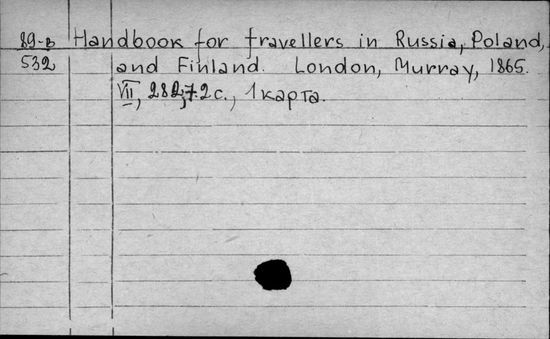 89-В Handbook for travellers in Russia, Poland,
532 and Finland. London, Murray, 1865.
VII, 282, 72 с., 1 карта.